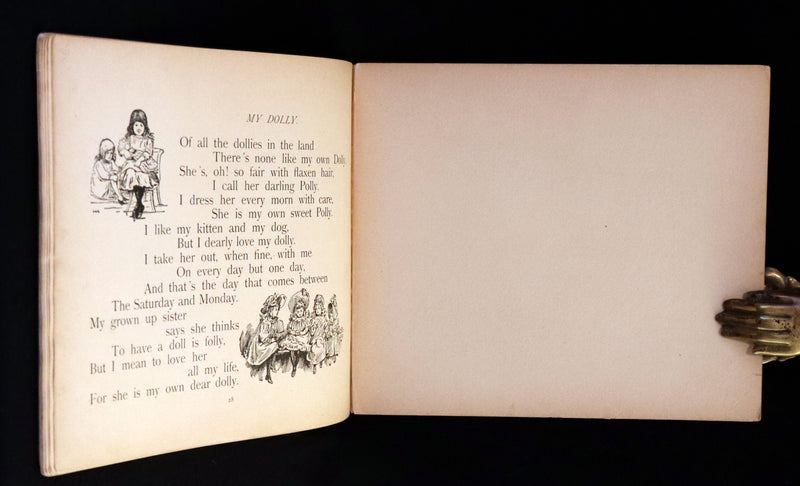 MY DOLLY.
Of all the dollies in the land
There's none like my own Dolly.
She's, oh! so fair with flaxen hair,
I call her darling Polly.
I dress her every morn with care,
She is my own sweet Polly.
I like my kitten and my dog,
But I dearly love my dolly.
I take her out, when fine, with me
On every day but one day,
And that's the day that comes between
The Saturday and Monday.
My grown up sister
says she thinks
To have a doll is folly,
But I mean to love her
all my life,
For she is my own dear dolly.
28